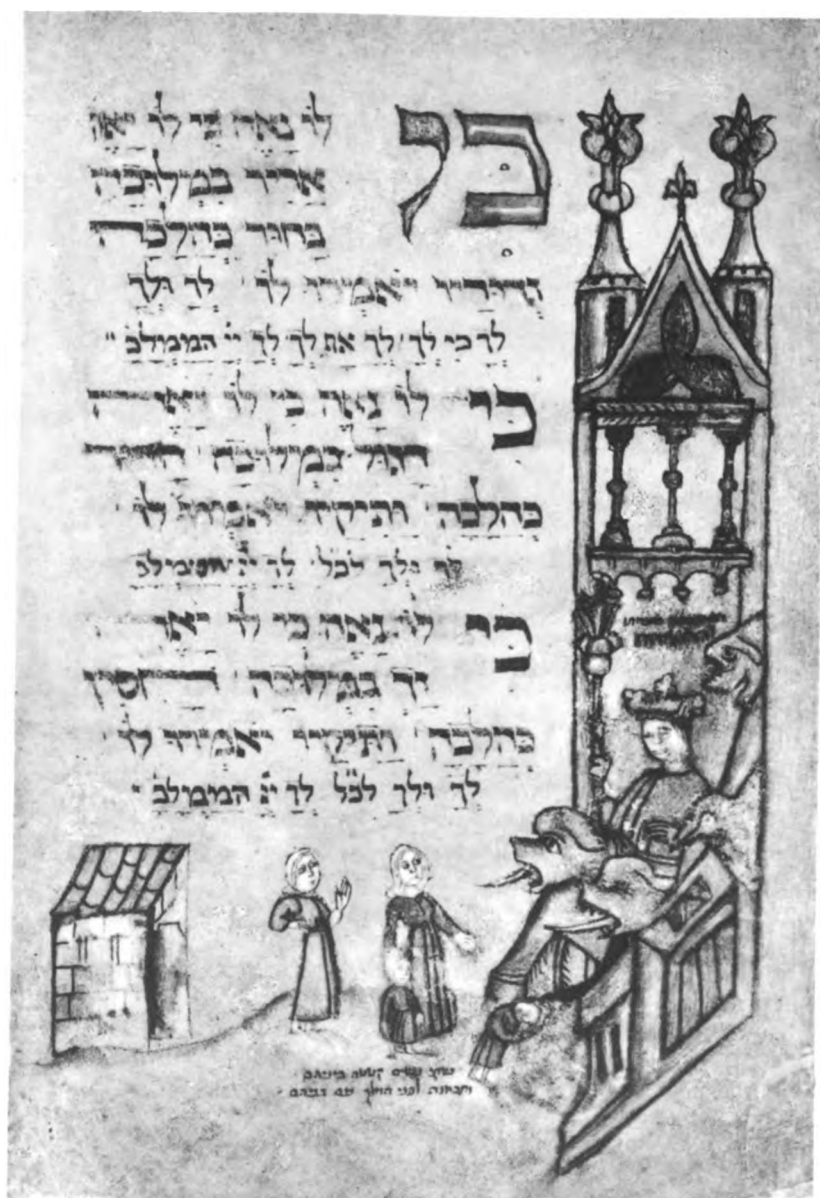 כי לו נאה כי לו יאה
אדיר במלוכה
בחור כהלכה
גדודיו יאמרו לו לך ולך
לך כי לך לך אף לך לך יי הממלכ
כי לו נאה כי לו יאה
דגול במלוכה הדור
כהלכה ותיקיו יאמרו לו
לך ולך לכל לך יי הממלכ
כי לו נאה כי לו יאה
זך במלוכה חסין
כהלכה ותיקיו יאמרו לו
לך ולך לכל לך יי הממלכ
נשים קטטה ביניהם
ותבאנה לפני המלך עם